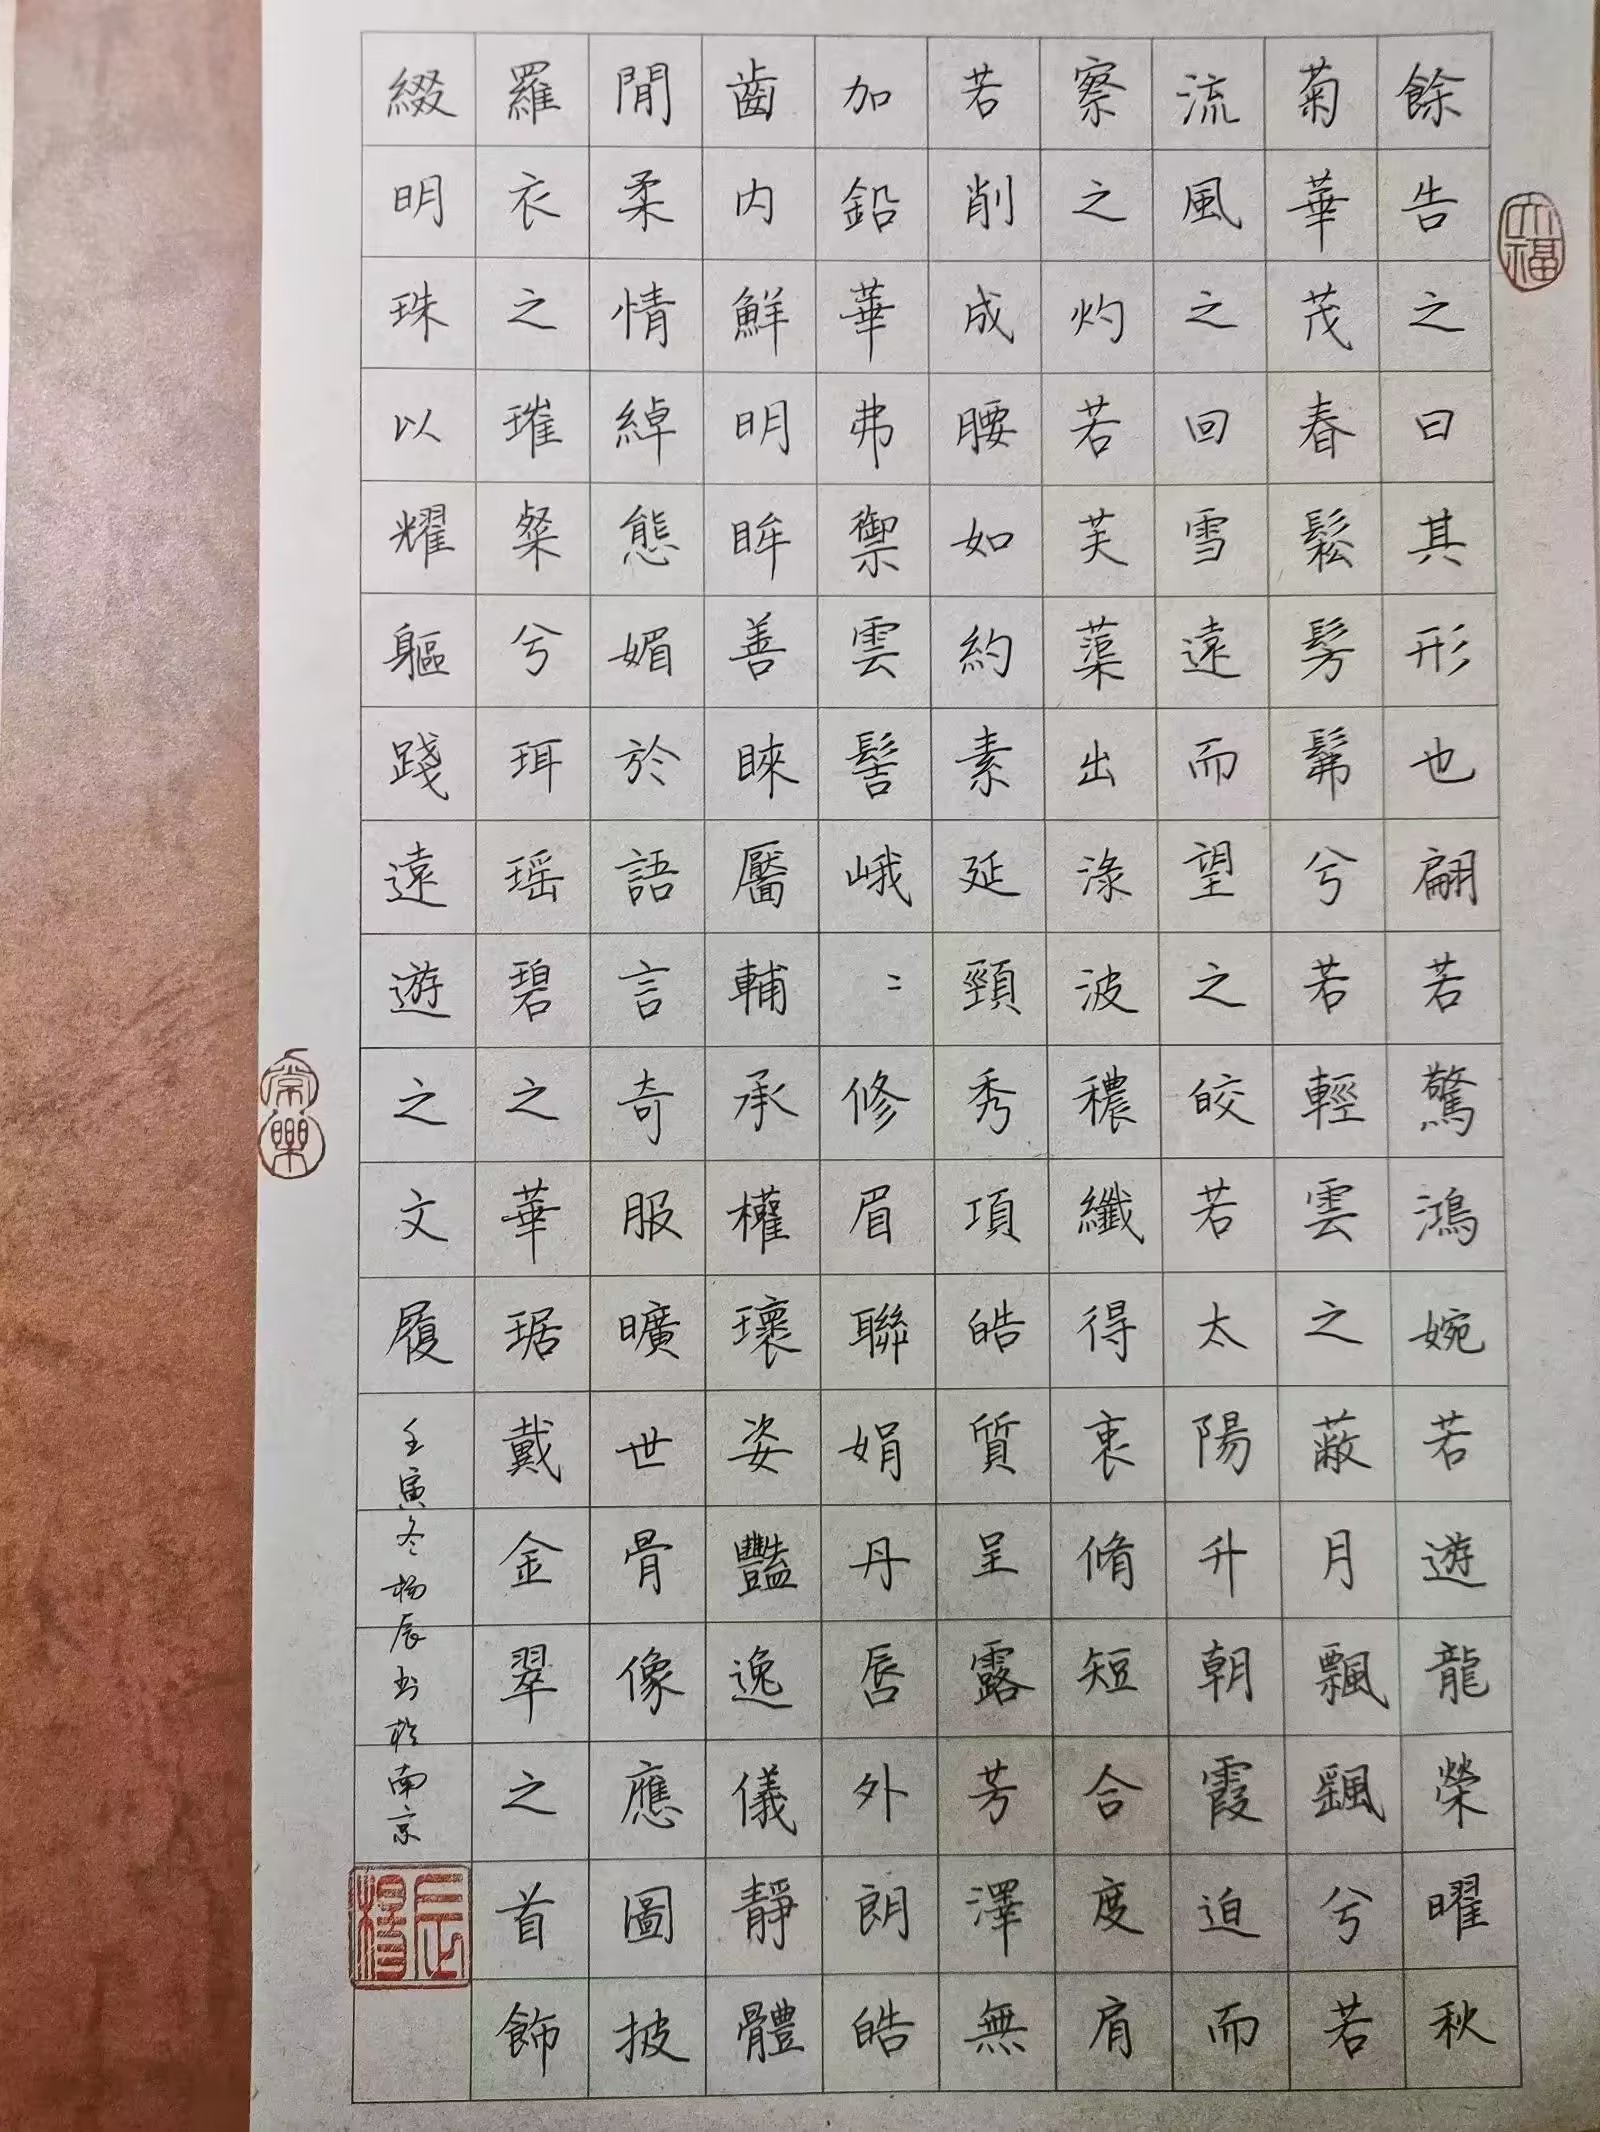 餘告之曰其形也翩若驚鴻婉若遊龍榮曜秋
菊華茂春鬆髣髴兮若輕雲之蔽月飄颻兮若
流風之回雪遠而望之皎若太陽升朝霞迫而
察之灼若芙蕖出淥波穠纖得衷脩短合度肩
若削成腰如約素延頸秀項皓質呈露芳澤無
加鉛華弗禦雲髻峨〻修眉聯娟丹唇外朗皓
齒內鮮明眸善睞靨輔承權瓌姿豔逸儀靜體
閒柔情綽態媚於語言奇服曠世骨像應圖披
羅衣之璀粲兮珥瑶碧之華琚戴金翠之首飾
綴明珠以耀軀踐遠遊之文履
壬寅冬楊辰书於南京
楊辰
福
常樂